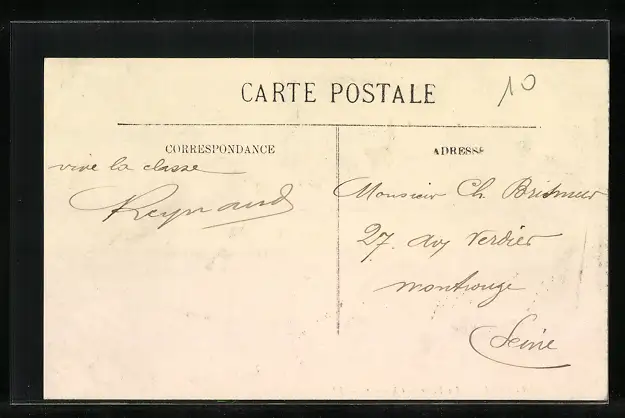 CARTE POSTALE
10
CORRESPONDANCE
vive la classe
Reynaud
ADRESSE
Monsieur Ch.
27. av Verdier
montrouge
Seine